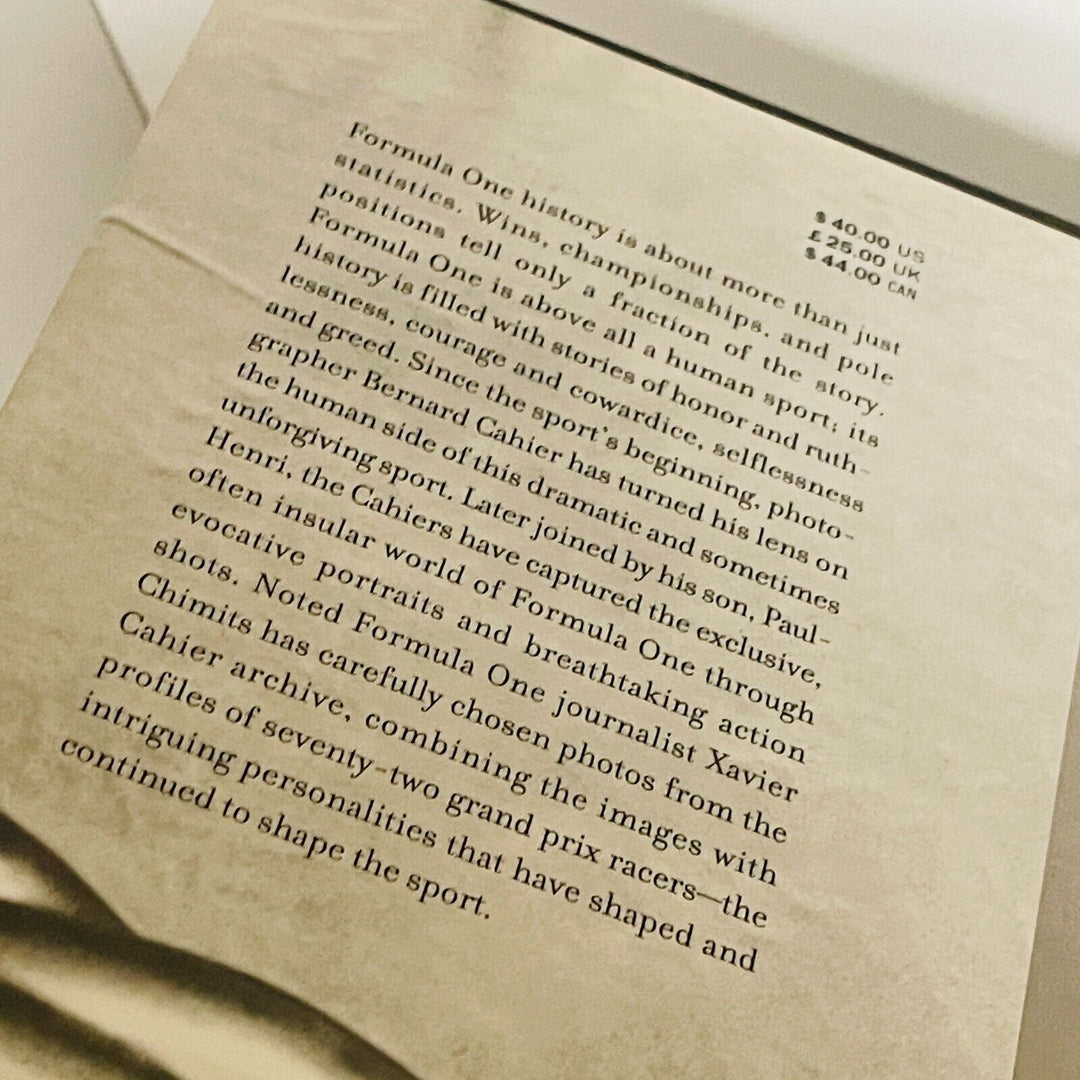 $40.00 US
£25.00 UK
$44.00 CAN
Formula One history is about more than just
statistics. Wins, championships, and pole
positions tell only a fraction of the story.
Formula One is above all a human sport; its
history is filled with stories of honor and ruth-
lessness, courage and cowardice, selflessness
and greed. Since the sport's beginning, photo-
grapher Bernard Cahier has turned his lens on
the human side of this dramatic and sometimes
unforgiving sport. Later joined by his son, Paul-
Henri, the Cahiers have captured the exclusive,
often insular world of Formula One through
evocative portraits and breathtaking action
shots. Noted Formula One journalist Xavier
Chimits has carefully chosen photos from the
Cahier archive, combining the images with
profiles of seventy-two grand prix racers—the
intriguing personalities that have shaped and
continued to shape the sport.